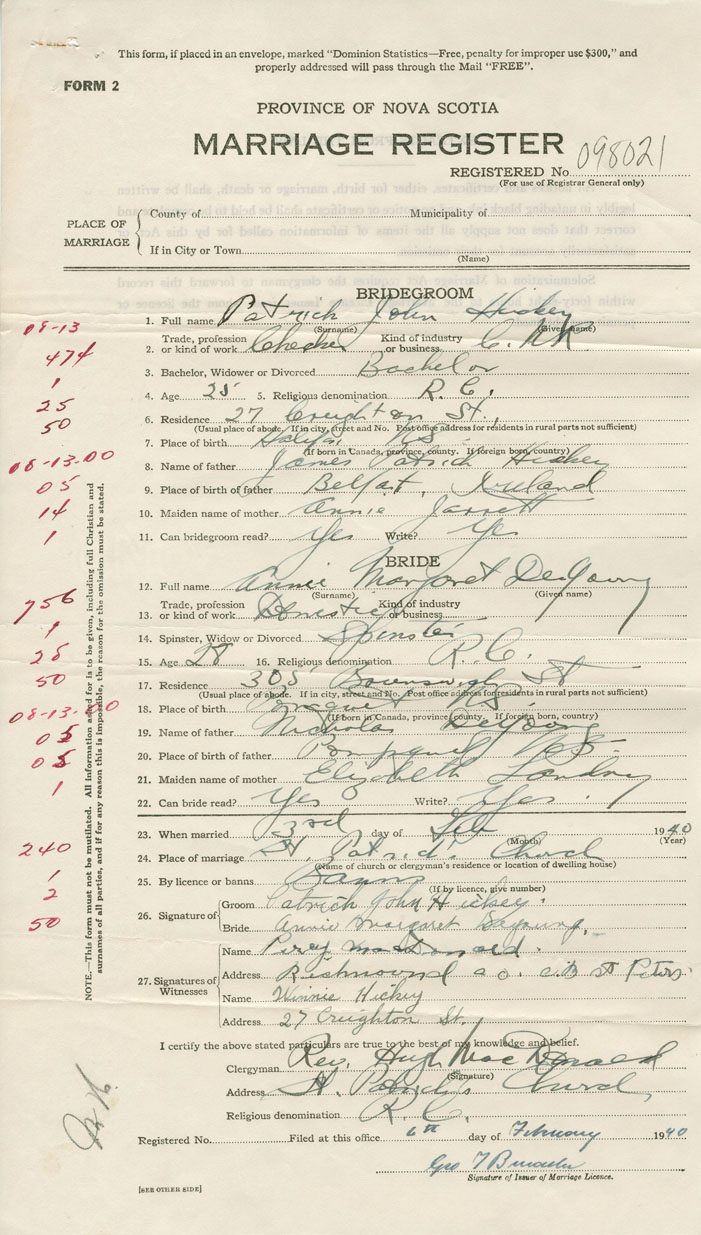 This form, if placed in an envelope, marked "Dominion Statistics—Free, penalty for improper use $300," and
properly addressed will pass through the Mail "FREE".
FORM 2
PROVINCE OF NOVA SCOTIA
MARRIAGE REGISTER
REGISTERED No. 098021
(For use of Registrar General only)
PLACE OF MARRIAGE
County of Municipality of
If in City or Town
(Name)
BRIDEGROOM
1. Full name Patrick John Hickey
(Surname) (Given name)
2. Trade, profession or kind of work Checker Kind of industry or business C.N.R.
3. Bachelor, Widower or Divorced Bachelor
4. Age 25 5. Religious denomination R.C.
6. Residence 27 Creighton St.,
(Usual place of abode. If in city, street and No. Post office address for residents in rural parts not sufficient)
7. Place of birth Halifax N.S.
(If born in Canada, province, county. If foreign born, country)
8. Name of father James Patrick Hickey
9. Place of birth of father Belfast, Ireland
10. Maiden name of mother Annie Jarrett
11. Can bridegroom read? Yes Write? Yes
BRIDE
12. Full name Annie Margaret DeYoung
(Surname) (Given name)
13. Trade, profession or kind of work Domestic Kind of industry or business
14. Spinster, Widow or Divorced Spinster
15. Age 28 16. Religious denomination R.C.
17. Residence 305 St
(Usual place of abode. If in city, street and No. Post office address for residents in rural parts not sufficient)
18. Place of birth NS
(If born in Canada, province, county. If foreign born, country)
19. Name of father Nicholas DeYoung
20. Place of birth of father N.S.
21. Maiden name of mother Elizabeth Landry
22. Can bride read? Yes Write? Yes
23. When married 3rd day of Feb 1940
(Month) (Year)
24. Place of marriage St. Patrick's Church
(Name of church or clergyman's residence or location of dwelling house)
25. By licence or banns Banns
(If by licence, give number)
26. Signature of
Groom Patrick John Hickey.
Bride Annie Margaret DeYoung.
27. Signatures of Witnesses
Name Percy MacDonald.
Address Richmond Co. C.B. St Peters.
Name Winnie Hickey
Address 27 Creighton St.
I certify the above stated particulars are true to the best of my knowledge and belief.
Clergyman Rev. Hugh MacDonald
(Signature)
Address St. Patrick's Church,
Religious denomination R.C.
Registered No. Filed at this office 6th day of February 1940
Geo
Signature of Issuer of Marriage Licence.
[SEE OTHER SIDE]
NOTE.—This form must not be mutilated. All Information asked for is to be given, including full Christian and
surnames of all parties, and if for any reason this is impossible, the reason for the omission must be stated.
08-13
474
1
25
50
08-13.00
05
14
1
756
1
28
50
08-13.00
05
05
1
240
1
2
50